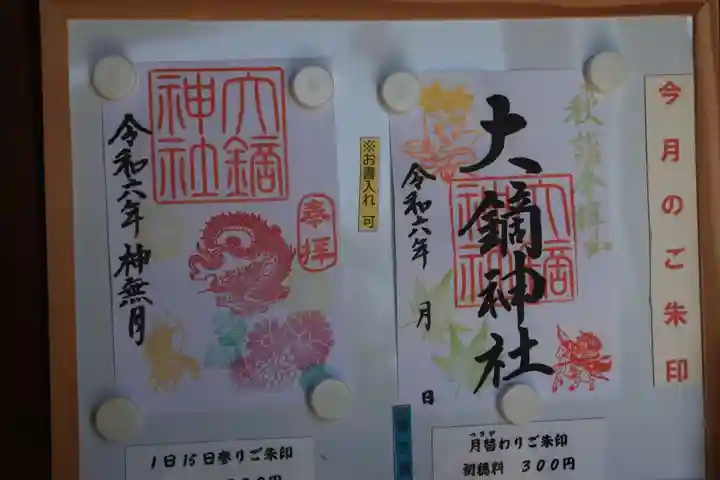 今月のご朱印
大鏑神社
令和六年 月 日
大鏑神社
※お書入れ 可
大鏑神社
奉拝
令和六年 神無月
つきが
月替わりご朱印
初穂料 300円
1日15日参りご朱印